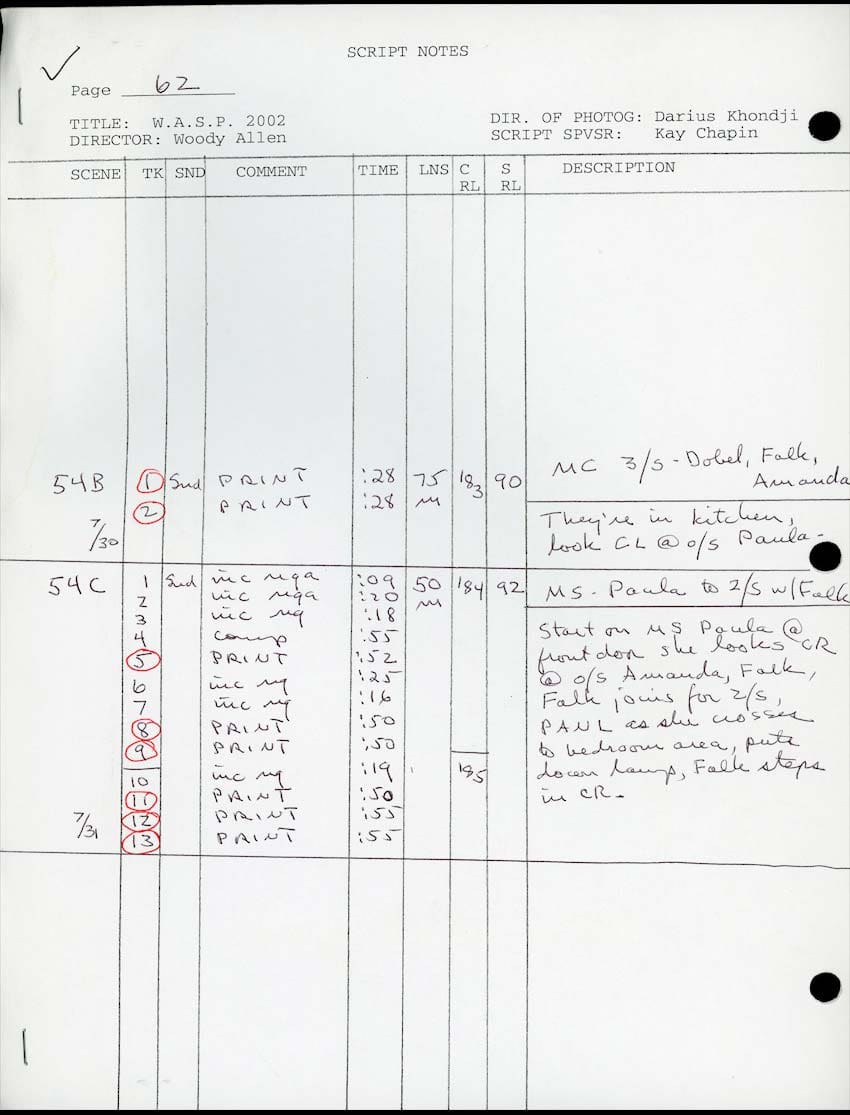 SCRIPT NOTES
Page 62
TITLE: W.A.S.P. 2002 DIR. OF PHOTOG: Darius Khondji
DIRECTOR: Woody Allen SCRIPT SPVSR: Kay Chapin
SCENE TK SND COMMENT TIME LNS C RL S RL DESCRIPTION
54B 1 Snd PRINT :28 75 183 90 MC 3/S - Dobel, Falk,
Amanda
2 PRINT :28 m They're in kitchen,
7/30 look CL @ o/s Paula-
54C 1 Snd inc nga :09 50 184 92 MS - Paula to 2/S w/Falk
2 inc nga :20 m
3 inc ng :18 Start on MS Paula @
4 comp :55 front door she looks CR
5 PRINT :52 @ o/s Amanda, Falk,
6 inc ng :25 Falk joins for 2/s,
7 inc ng :16 PAN L as she crosses
8 PRINT :50 to bedroom area, puts
9 PRINT :50 down lamp, Falk steps
10 inc ng :19 185 in CR.
11 PRINT :50
7/31 12 PRINT :55
13 PRINT :55